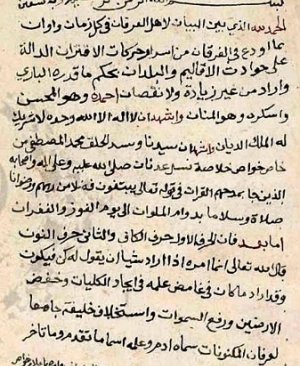 الحمد لله الذي بين البيان لاهل العرفان في كل زمان واوان
بما اودع في الفرقان من اسرار حركات الاقتران الدالة
على حوادث الاقاليم والبلدان بحكم ما قدره الباري
واراد من غير زيادة ولا نقصان احمده وهو المحسن
واشكره وهو المنان واشهد ان لا اله الا الله وحده لا شريك
له الملك الديان واشهد ان سيدنا وسند الخلق محمد المصطفى من
خاص خواص خلاصة نسل عدنان صلى الله عليه وعلى اله واصحابه
الذين جا بمدحهم القران في قوله تعالى يبتغون فضلا من ربهم ورضوانا
صلاة وسلاما بدوام الملوان الى يوم الفوز والغفران
اما بعد فان الحرف الاول حرف الكاف والثاني حرف النون
قال الله تعالى انما امره اذا اراد شيا ان يقول له كن فيكون
وقد اراد ما كان في غامض علمه في ايجاد الكليات وخفض
الارضين ورفع السموات واستخلاف خليفة جامعا
لعرفان المكنونات سماه ادم وعلمه اسما ما تقدم وما تاخر